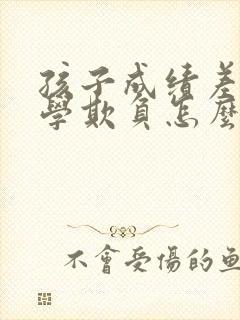 孩子成绩差
學欺負怎麼
不會受傷的魚